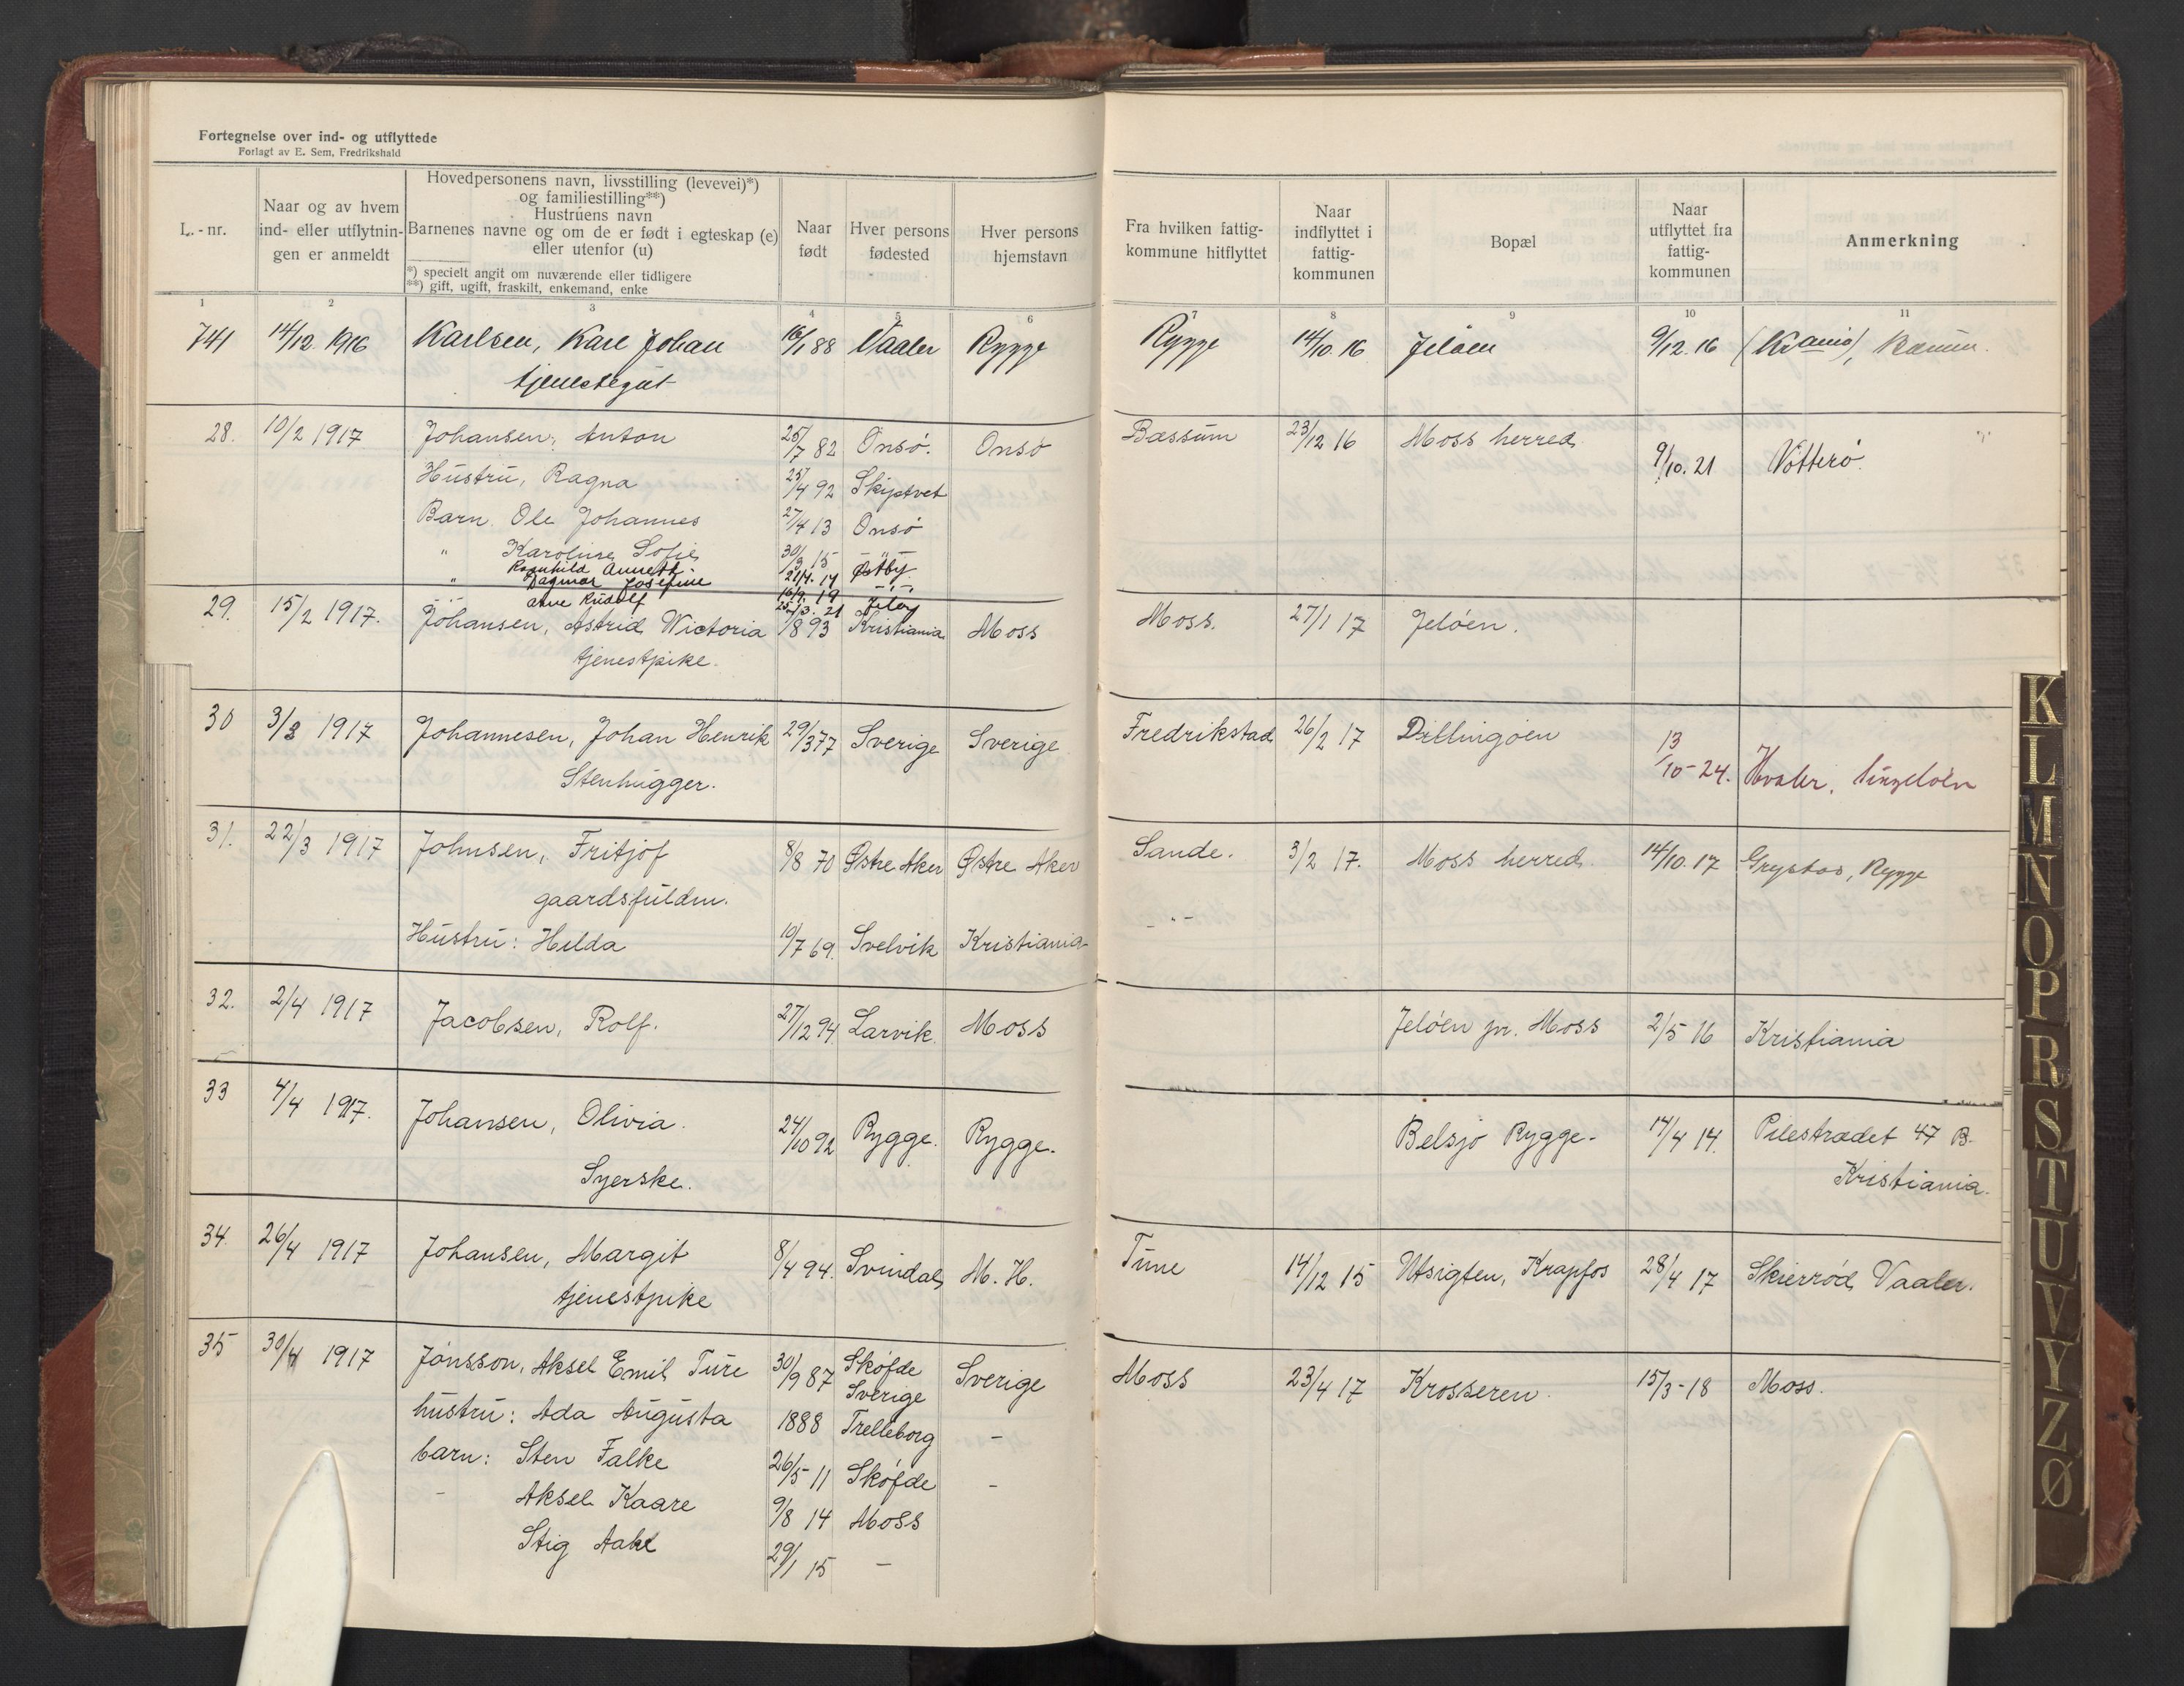 Fortegnelse over ind- og utflyttede
Forlagt av E. Sem, Fredrikshald
L.-nr.
Naar og av hvem
ind- eller utflytnin-
gen er anmeldt
Hovedpersonens navn, livsstilling (levevei)*)
og familiestilling**)
Hustruens navn
Barnenes navne og om de er født i egteskap (e)
eller utenfor (u)
*) specielt angit om nuværende eller tidligere
**) gift, ugift, fraskilt, enkemand, enke
Naar
født
Hver persons
fødested
Hver persons
hjemstavn
Fra hvilken fattig-
kommune hitflyttet
Naar
indflyttet i
fattig-
kommunen
Bopæl
Naar
utflyttet fra
fattig-
kommunen
Anmerkning
1 2 3 4 5 6 7 8 9 10 11
741 14/12 1916 Karlsen, Karl Johan 16/1 88 Vaaler Rygge Rygge 14/10.16 Jeløen 9/12.16 (Kr.ania), Bærum.
tjenestegut
28. 10/2 1917 Johansen, Anton 25/7 82 Onsø. Onsø Bæssum 23/12 16 Moss herred 9/10.21 Vøtterø.
Hustru, Ragna 25/4 92 Skiptvet
Barn. Ole Johannes 27/4 13 Onsø
" Karoline Sofie 30/3 15 - " -
Ragnhild Annette 21/4.17 Østby
" Dagmar Josefine 16/9.19 - " -
Arne Rudolf 25/3.21 Jeløy
29. 15/2 1917. Johansen, Astrid Wictoria /8 93 Kristiania Moss Moss. 27/1 17 Jeløen.
tjenestpike.
30 3/3 1917 Johannesen, Johan Henrik 29/3 77 Sverige Sverige Fredrikstad 26/2 17 Dillingøen 13/10-24. Hvaler, Singeløen
Stenhugger.
31. 22/3 1917 Johnsen, Fritjof 8/8 70 Østre Aker Østre Aker Sande. 3/2 17. Moss herred. 14/10.17 Grystad, Rygge
gaardsfuldm.
Hustru: Hilda 10/7 69. Svelvik Kristiania - " -
32. 2/4 1917 Jacobsen, Rolf. 27/12 94 Larvik Moss Jeløen pr. Moss 2/5 16 Kristiania
33 4/4 1917. Johansen, Olivia. 24/10 92 Rygge. Rygge. Belsjø Rygge- 14/4 14. Pilestrædet 47 B.
Syerske. Kristiania.
34. 26/4 1917 Johansen, Margit 8/4 94. Svindal M. H. Tune 14/12 15 Utsigten, Krapfos 28/4 17 Skierrød Vaaler.
tjenestpike
35 30/4 1917 Jónsson, Aksel Emil Ture 30/9 87 Skøfde Sverige Moss 23/4 17 Krosseren. 15/3-18 Moss.
Sverige
hustru: Ada Augusta 1888 Trelleborg -
barn: Sten Falke 26/5 11 Skøfde -
- Aksel Kaare 9/8 14 Moss
Stig Aake 29/1 15 -
K
L
M
N
O
P
R
S
T
U
V
Y
Z
Ø